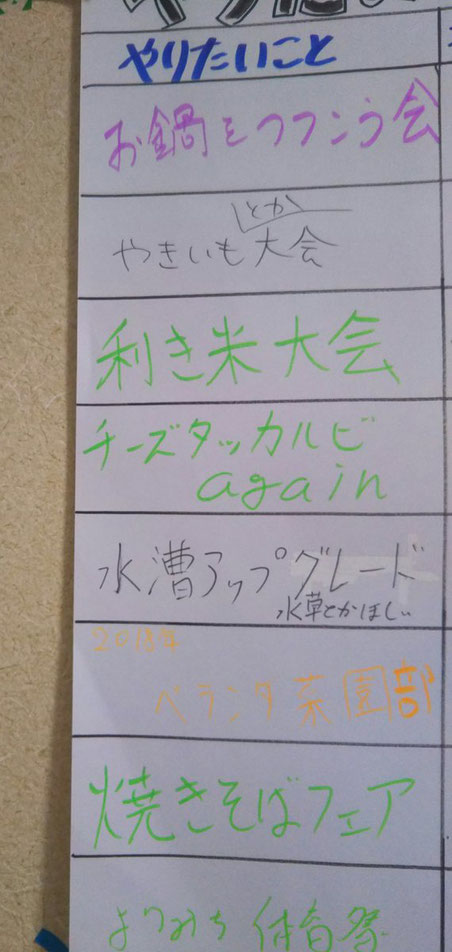 やりたいこと
お鍋をつつこう会
とか
やきいも大会
利き米大会
チーズタッカルビ
again
水漕アップグレード
水草とかほしい
2018年
ベランダ菜園部
焼きそばフェア
よりみち体育祭